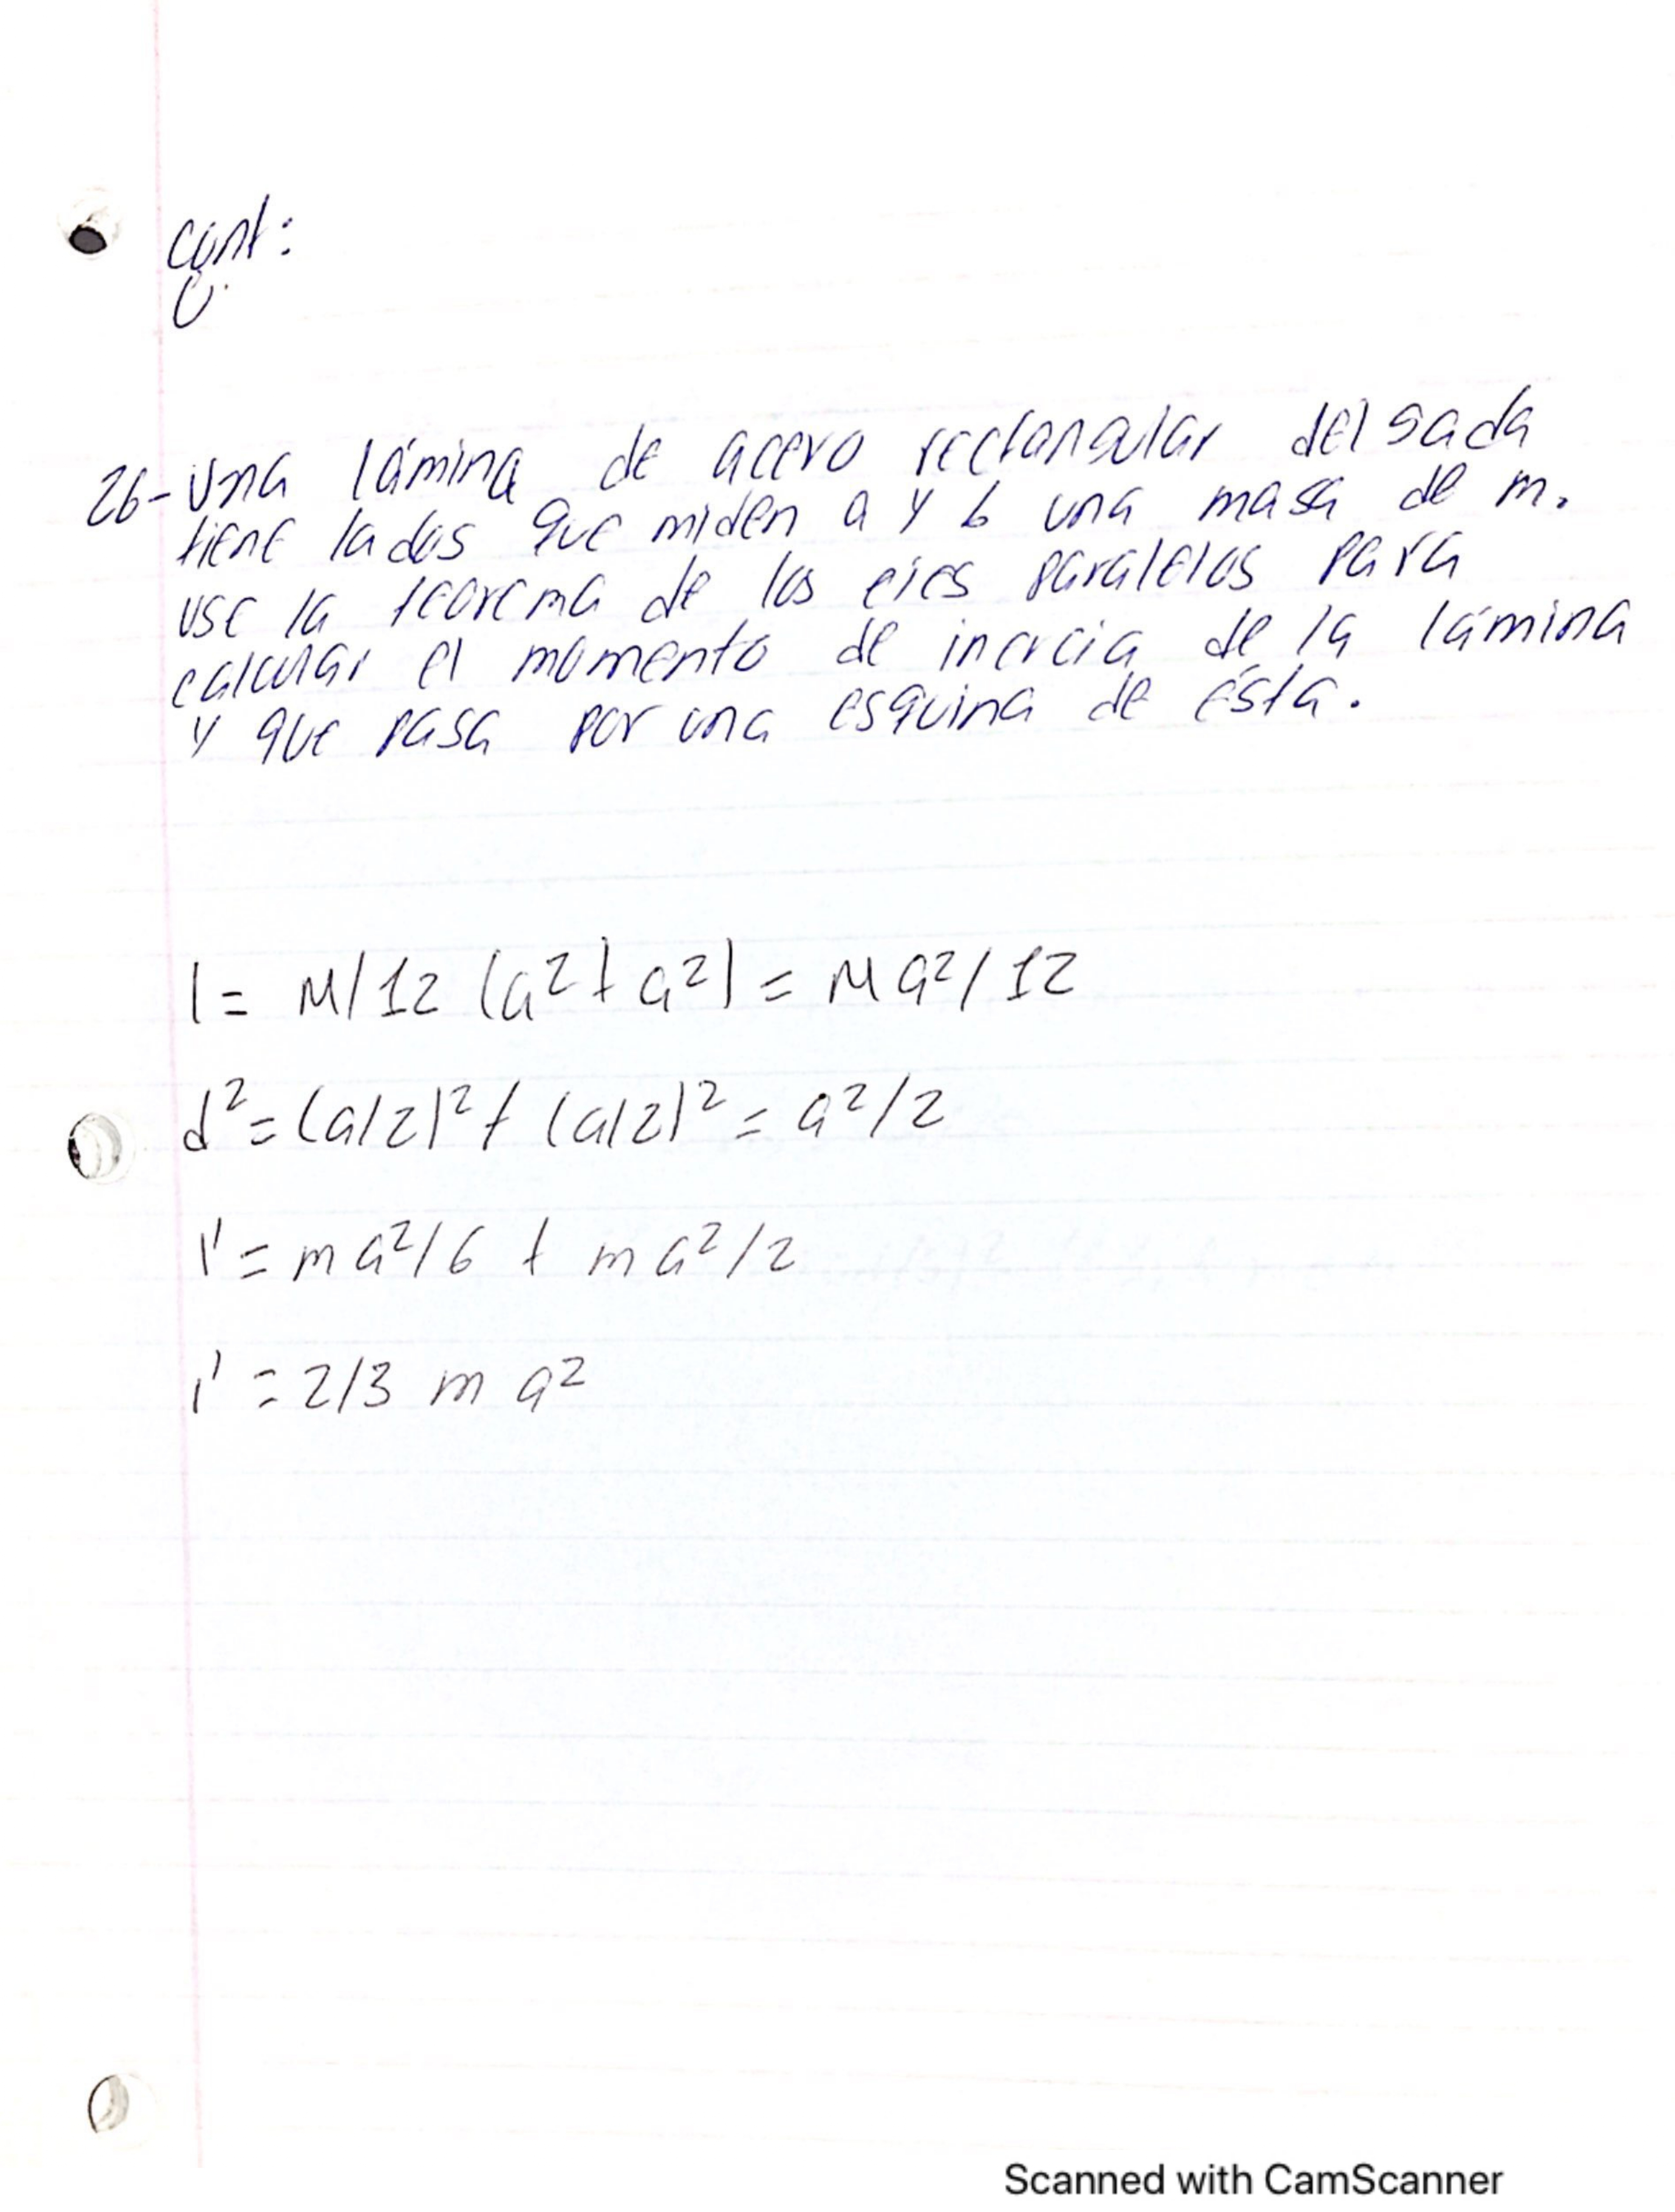 cont:
26- Una lámina de acero rectangular delgada
tiene lados que miden a y b una masa de m.
use la teorema de los ejes paralelos para
calcular el momento de inercia de la lámina
y que pasa por una esquina de ésta.
I = M/12 (a²+a²) = Ma²/12
d² = (a/2)² + (a/2)² = a²/2
I' = ma²/6 + ma²/2
I' = 2/3 m a²
Scanned with CamScanner